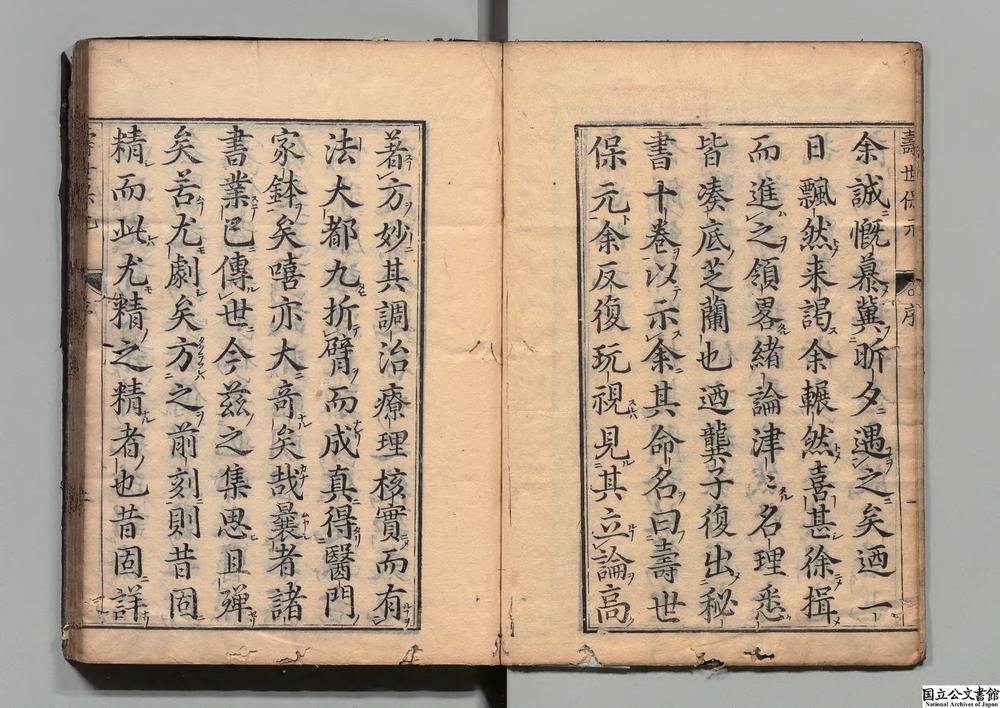 壽世保元
序
余誠慨慕冀昕夕遇之矣迺一
日飄然来謁余輾然喜甚徐揖
而進之領畧緒論津〻名理悉
皆凑底芝蘭也迺龔子復出秘
書十卷以示余其命名曰壽世
保元余反復玩視見其立論高
著方妙其調治療理核實而有
法大都九折臂而成真得醫門
家鉢矣嘻亦大奇矣哉曩者諸
書業已傳世今茲之集思且殫
矣苦尤劇矣方之前刻則昔固
精而此尤精之精者也昔固詳
国立公文書館
National Archives of Japan